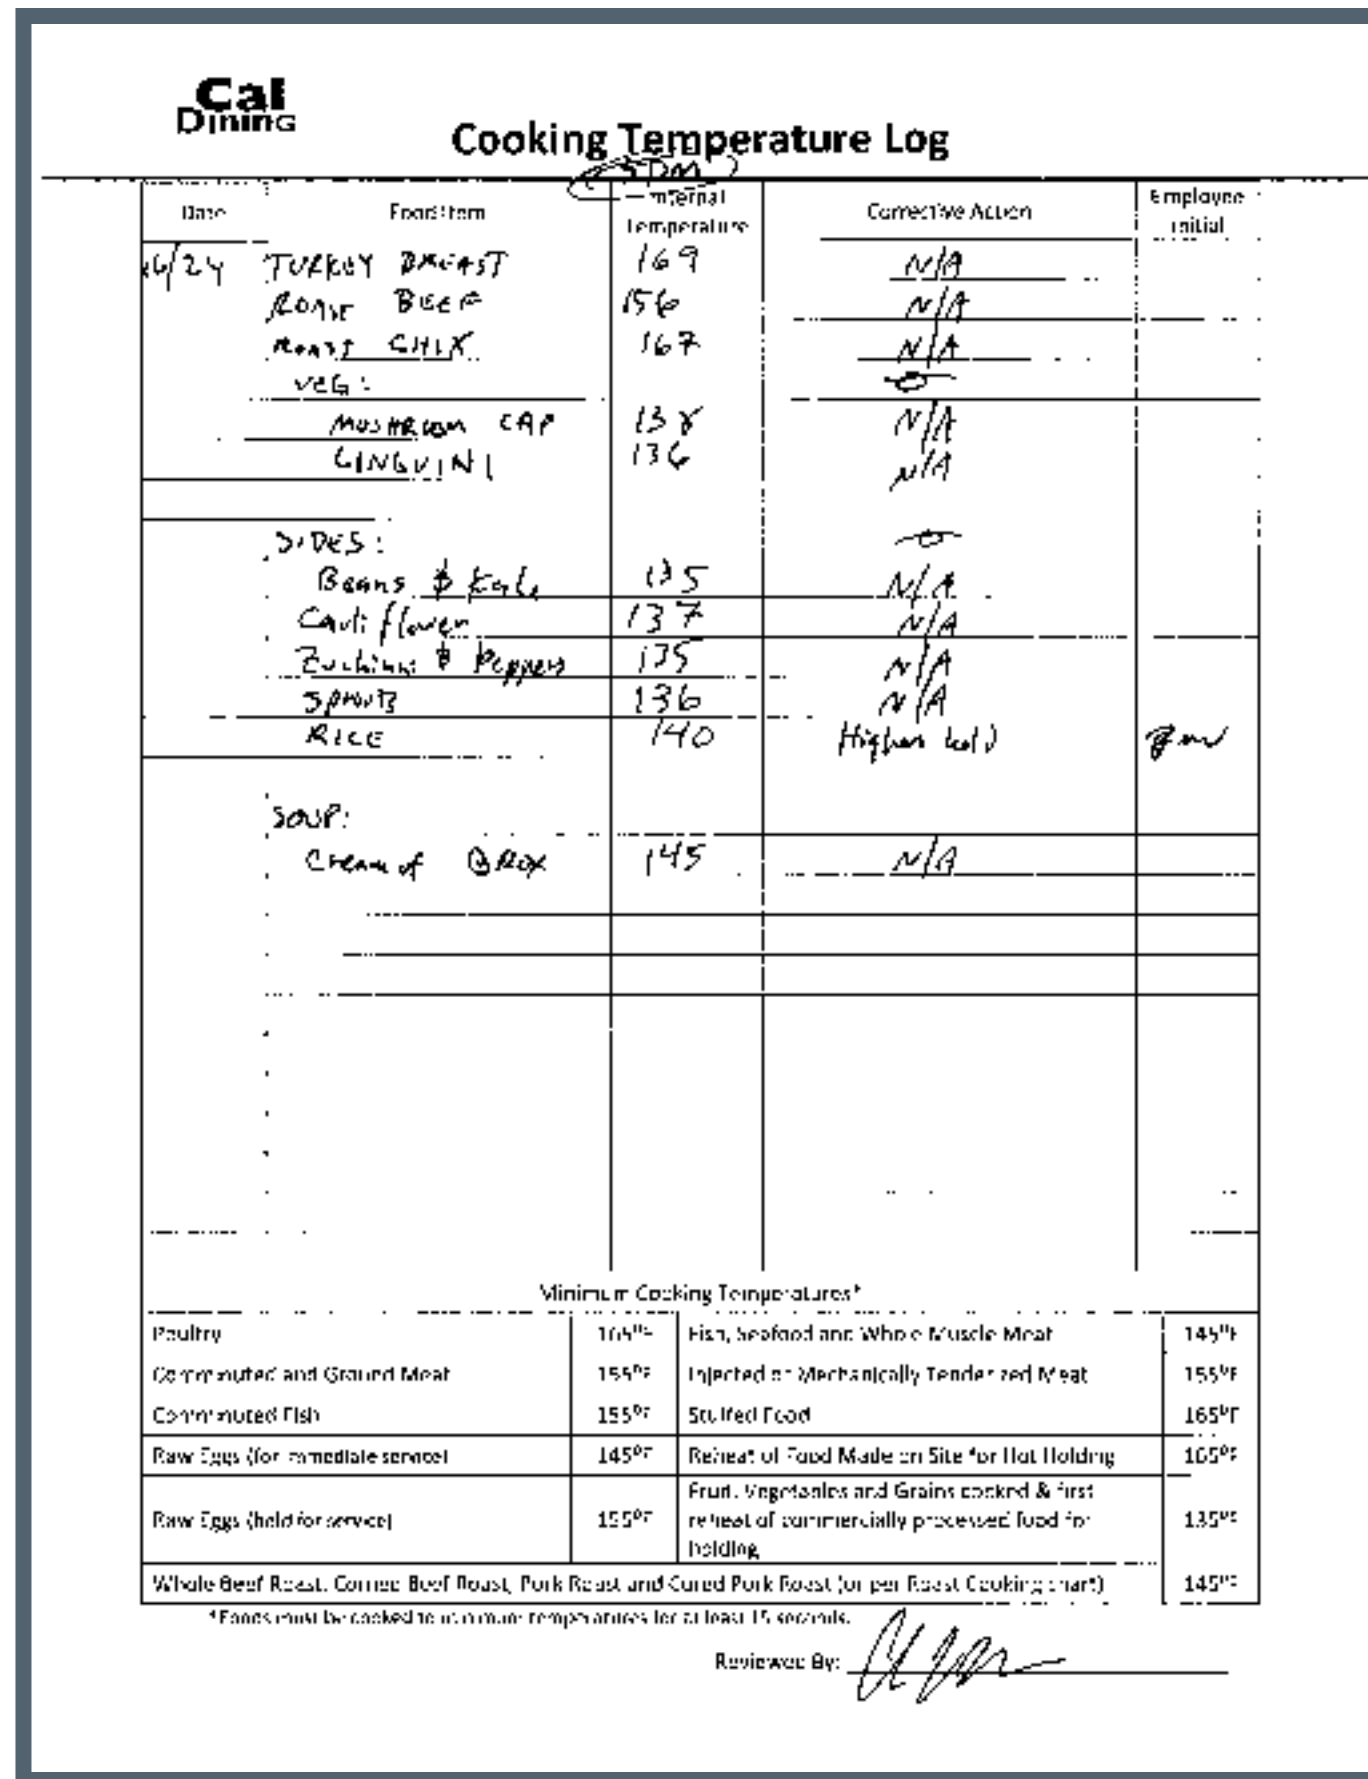 Cal
Dining
Cooking Temperature Log
Date Food Item Internal Temperature Corrective Action Employee Initial
6/24 TURKEY BREAST 169 N/A
ROAST BEEF 156 N/A
ROAST CHIX 167 N/A
VEG:
MUSHROOM CAP 138 N/A
LINGUINI 136 N/A
SIDES:
Beans & Kale 135 N/A
Cauliflower 137 N/A
Zuchinni & Peppers 135 N/A
SPROUTS 136 N/A
RICE 140 Higher hold
SOUP:
Cream of BROX 145 N/A
Minimum Cooking Temperatures*
Poultry 165°F Fish, Seafood and Whole Muscle Meat 145°F
Comminuted and Ground Meat 155°F Injected or Mechanically Tenderized Meat 155°F
Comminuted Fish 155°F Stuffed Food 165°F
Raw Eggs (for immediate service) 145°F Reheat of Food Made on Site for Hot Holding 165°F
Raw Eggs (held for service) 155°F Fruit, Vegetables and Grains cooked & first reheat of commercially processed food for holding 135°F
Whole Beef Roast, Corned Beef Roast, Pork Roast and Cured Pork Roast (or per Roast Cooking chart) 145°F
*Foods must be cooked to minimum temperatures for at least 15 seconds.
Reviewed By: